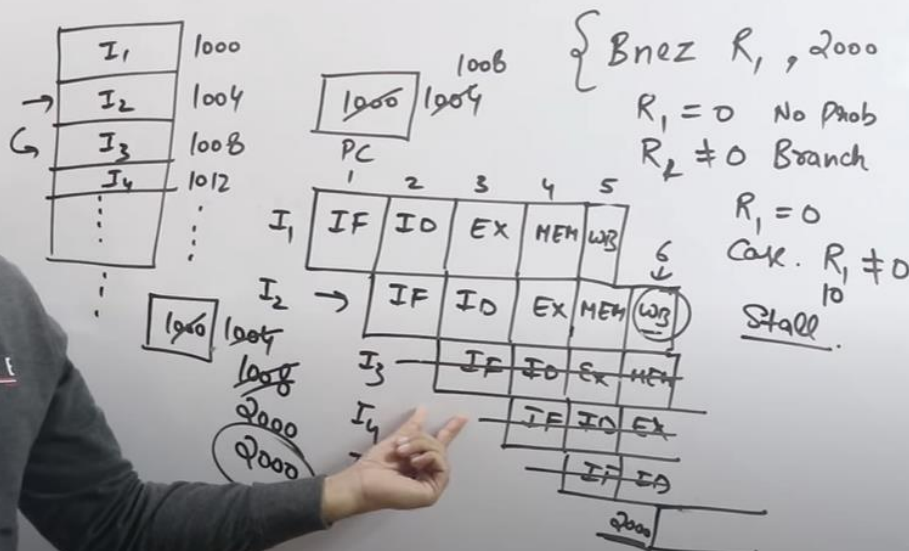 I₁ 1000
→ I₂ 1004
I₃ 1008
I₄ 1012
1008
1000 1004
PC
{ Bnez R₁ , 2000
R₁ = 0 No Prob
R₂ ≠ 0 Branch
R₁ = 0
Case. R₁ ≠ 0
10
Stall.
1 2 3 4 5
I₁ IF ID EX MEM WB
6
I₂ → IF ID EX MEM WB
I₃ IF ID EX MEM
I₄ IF ID EX
IF ID
2000
1000 1004
1008
2000
2000
E